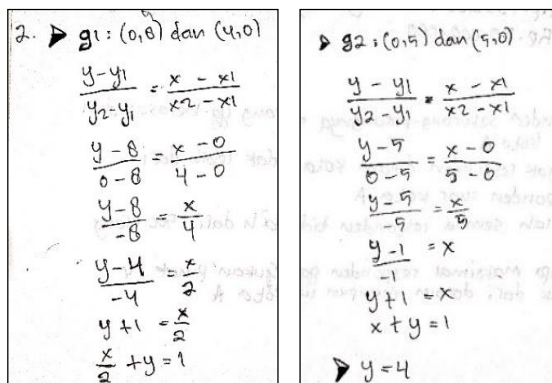 2. ▶ g1 : (0,8) dan (4,0)
y-y1/y2-y1 = x - x1/x2-x1
y-8/0-8 = x-0/4-0
y-8/-8 = x/4
y-4/-4 = x/2
y+1 = x/2
x/2 + y = 1
▶ g2 : (0,5) dan (5,0)
y - y1/y2-y1 = x - x1/x2-x1
y-5/0-5 = x-0/5-0
y-5/-5 = x/5
y-1/-1 = x
y+1 = x
x+y = 1
▶ y=4